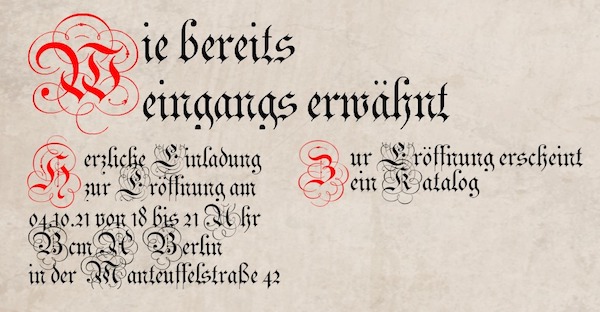 Wie bereits
eingangs erwähnt
Herzliche Einladung
zur Eröffnung am
04.10.21 von 18 bis 21 Uhr
BcmA Berlin
in der Manteuffelstraße 42
Zur Eröffnung erscheint
ein Katalog